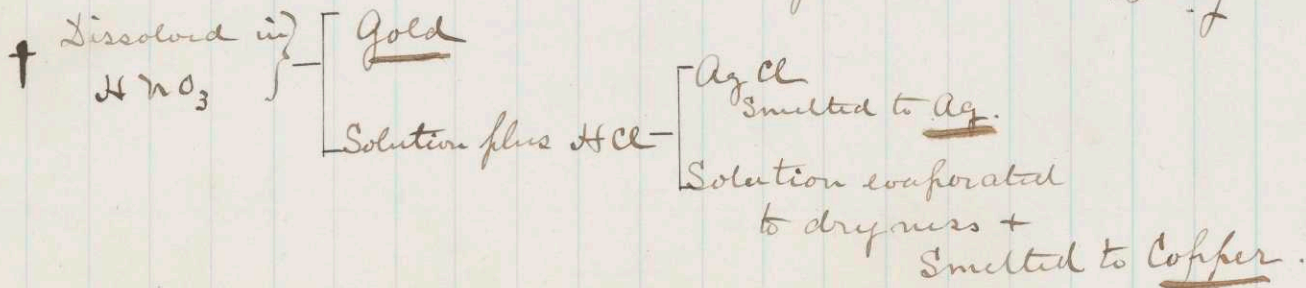 † Dissolved in } Gold
HNO3
Solution plus HCl - AgCl
Smelted to Ag.
Solution evaporated
to dryness +
Smelted to Copper.